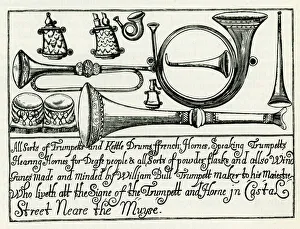 All Sorts of Trumpetts and Kettle Drums ffrench Hornes, Speaking Trumpetts
Hearing Hornes for Deafe people & all Sorts of powder flasks and allso Wind
Gunes made and minded by William Bull Trumpett maker to his Majestie
Who liveth att the Signe of the Trumpett and Horne in Castel
Street Neare the Muyse.